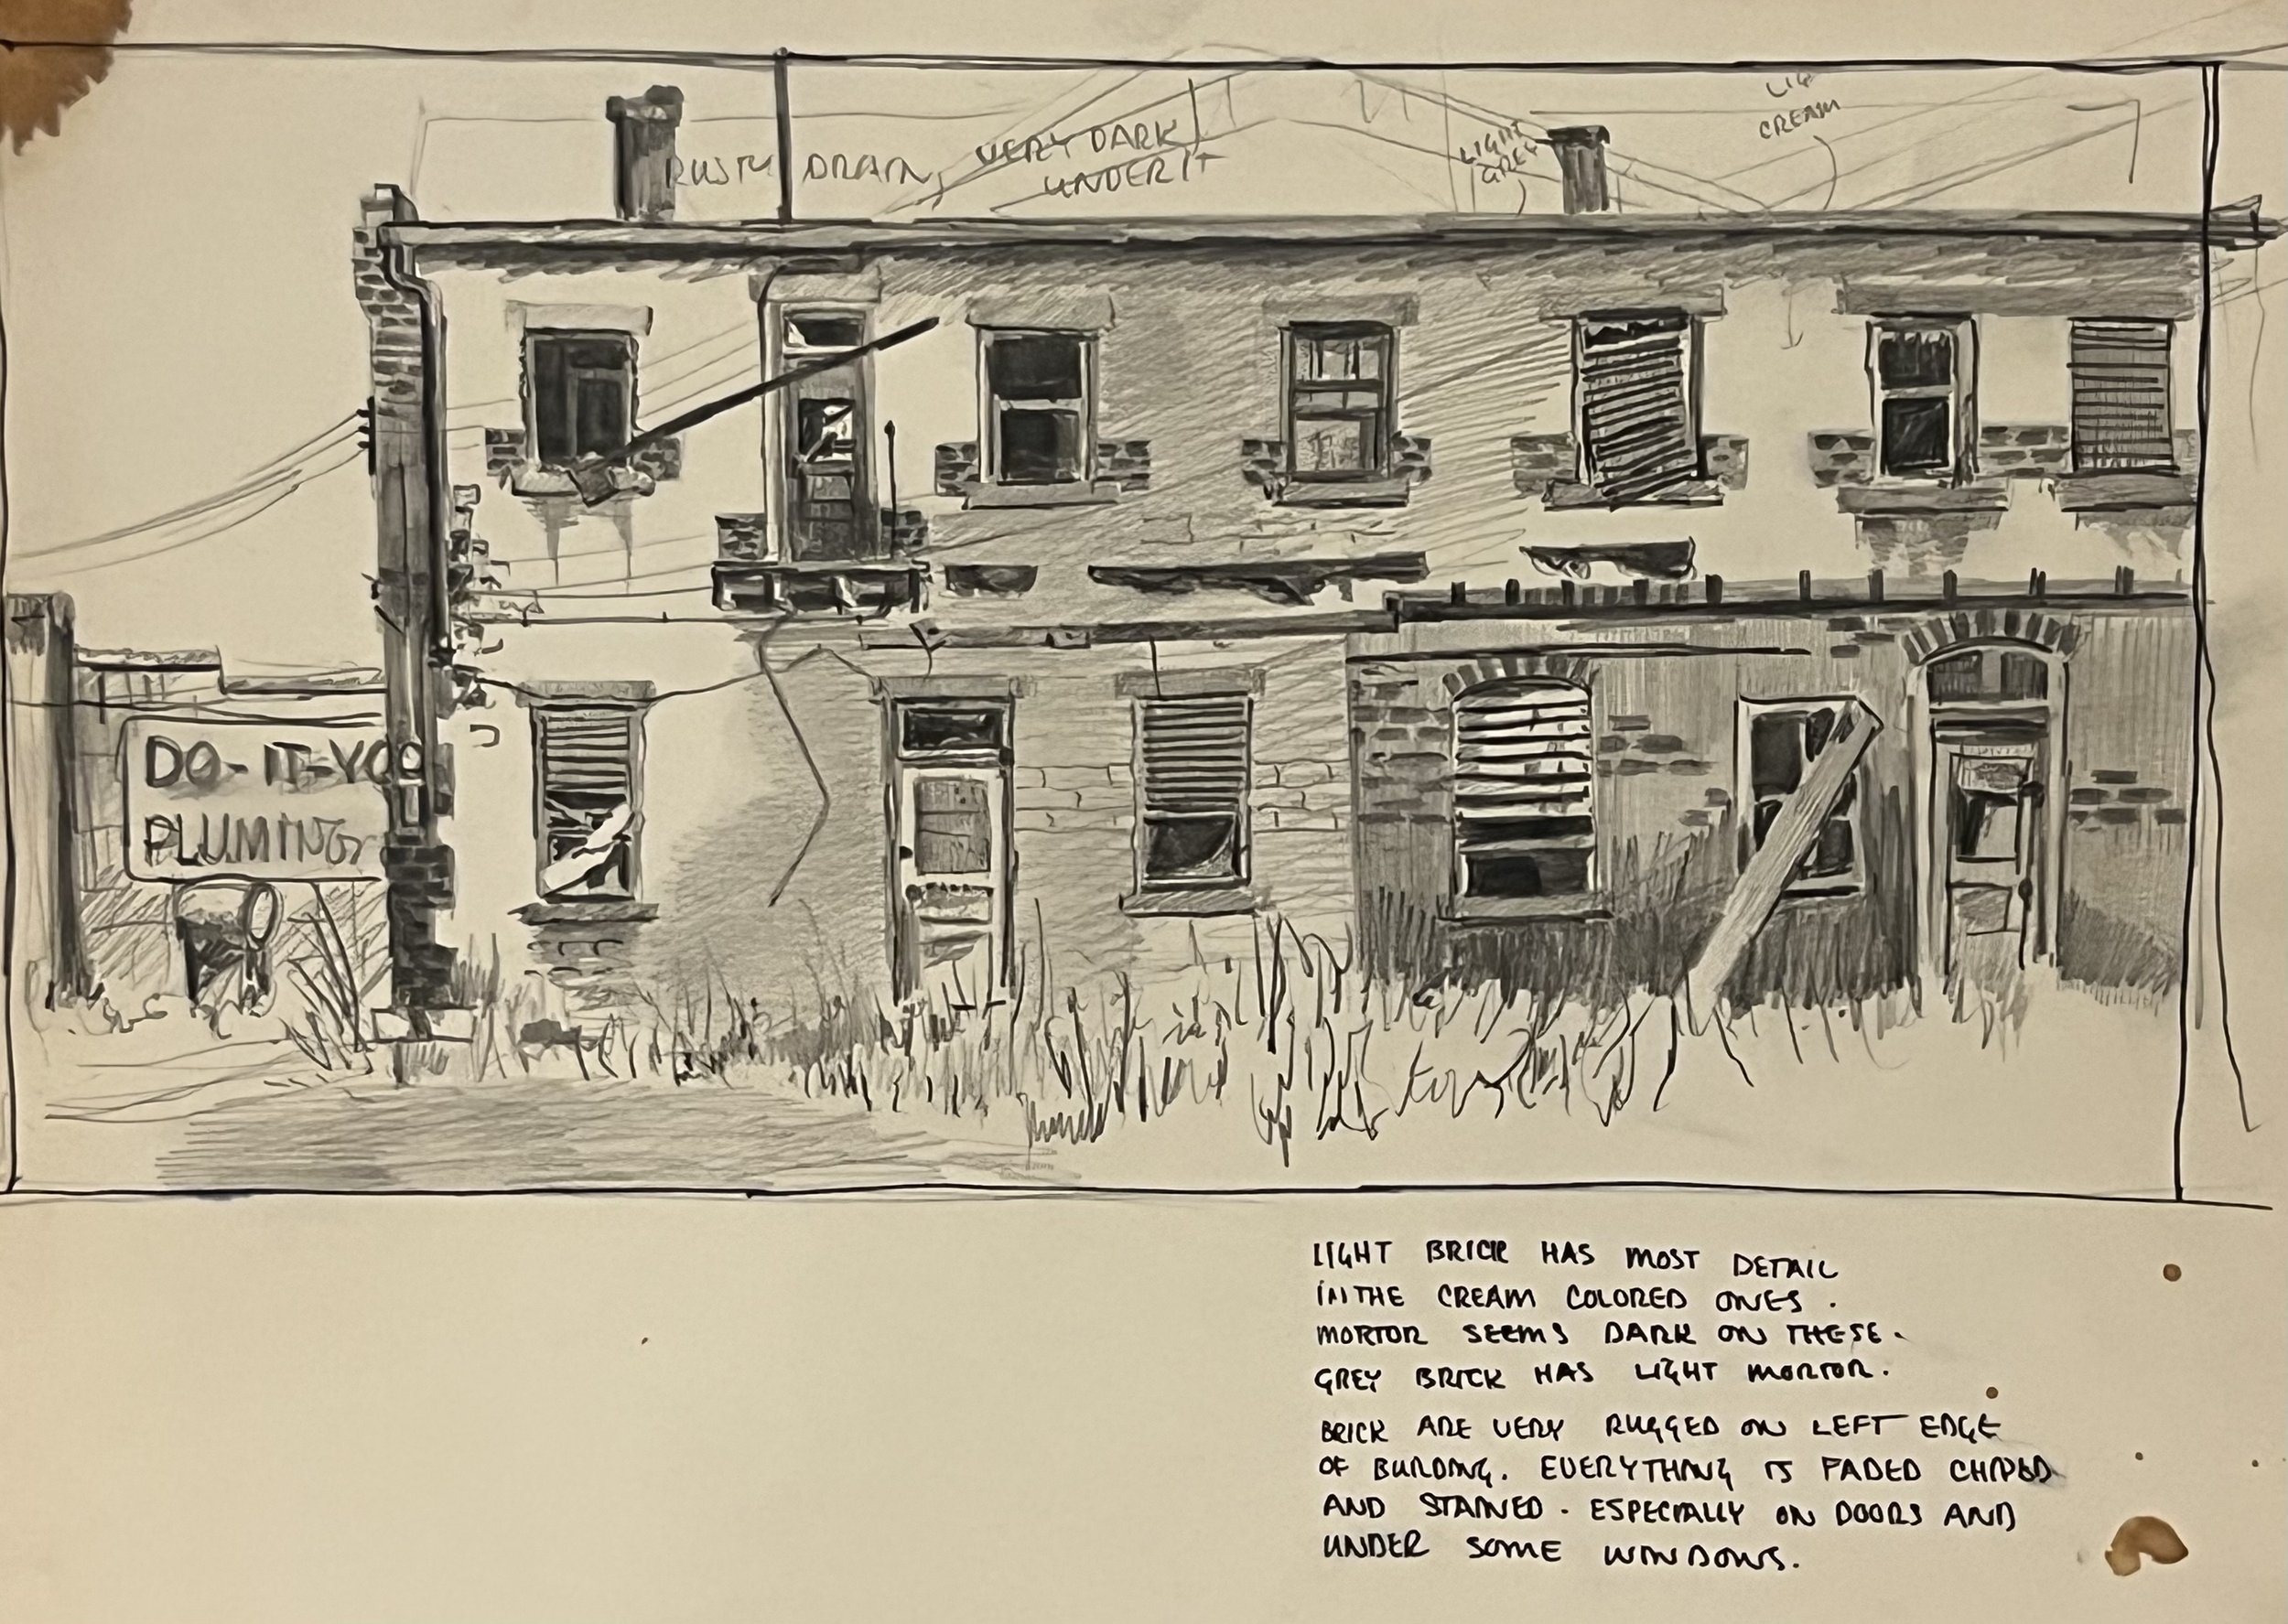 LIG
CREAM
RUSTY DRAIN, VERY DARK
UNDER IT
LIGHT
GREY
DO-IT-YOU
PLUMING
LIGHT BRICK HAS MOST DETAIL
IN THE CREAM COLORED ONES.
MORTOR SEEMS DARK ON THESE.
GREY BRICK HAS LIGHT MORTOR.
BRICK ARE VERY RUGGED ON LEFT EDGE
OF BUILDING. EVERYTHING IS FADED CHIPPED
AND STAINED. ESPECIALLY ON DOORS AND
UNDER SOME WINDOWS.